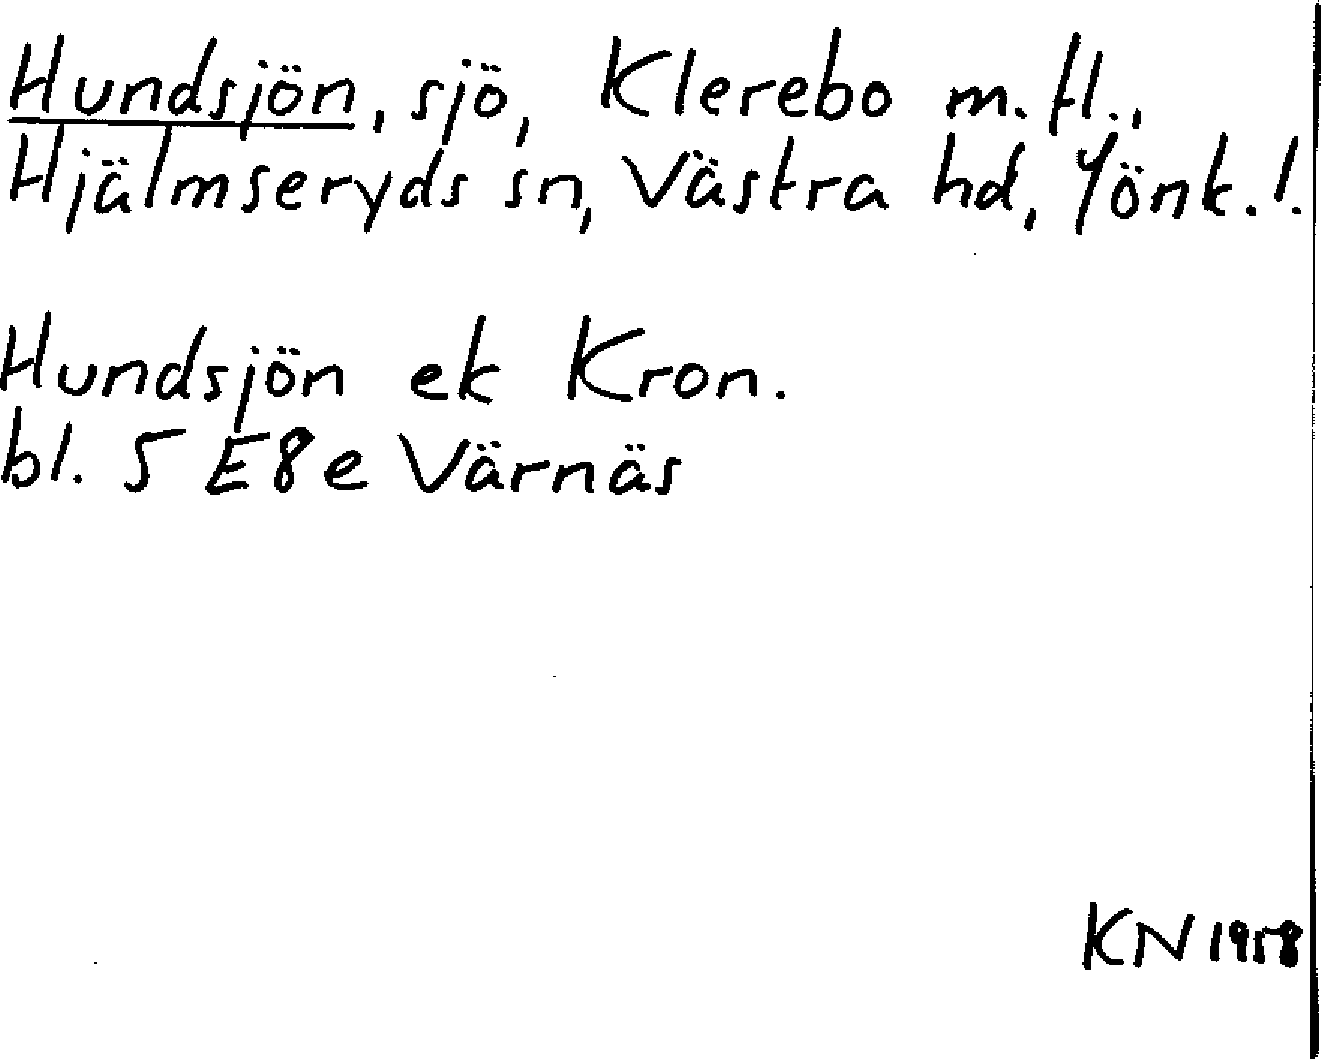 Hundsjön, sjö, Klerebo m.fl.,
Hjälmseryds sn, Västra hd, Jönk.l.
Hundsjön ek Kron.
bl. 5 E8e Värnäs
KN 1958